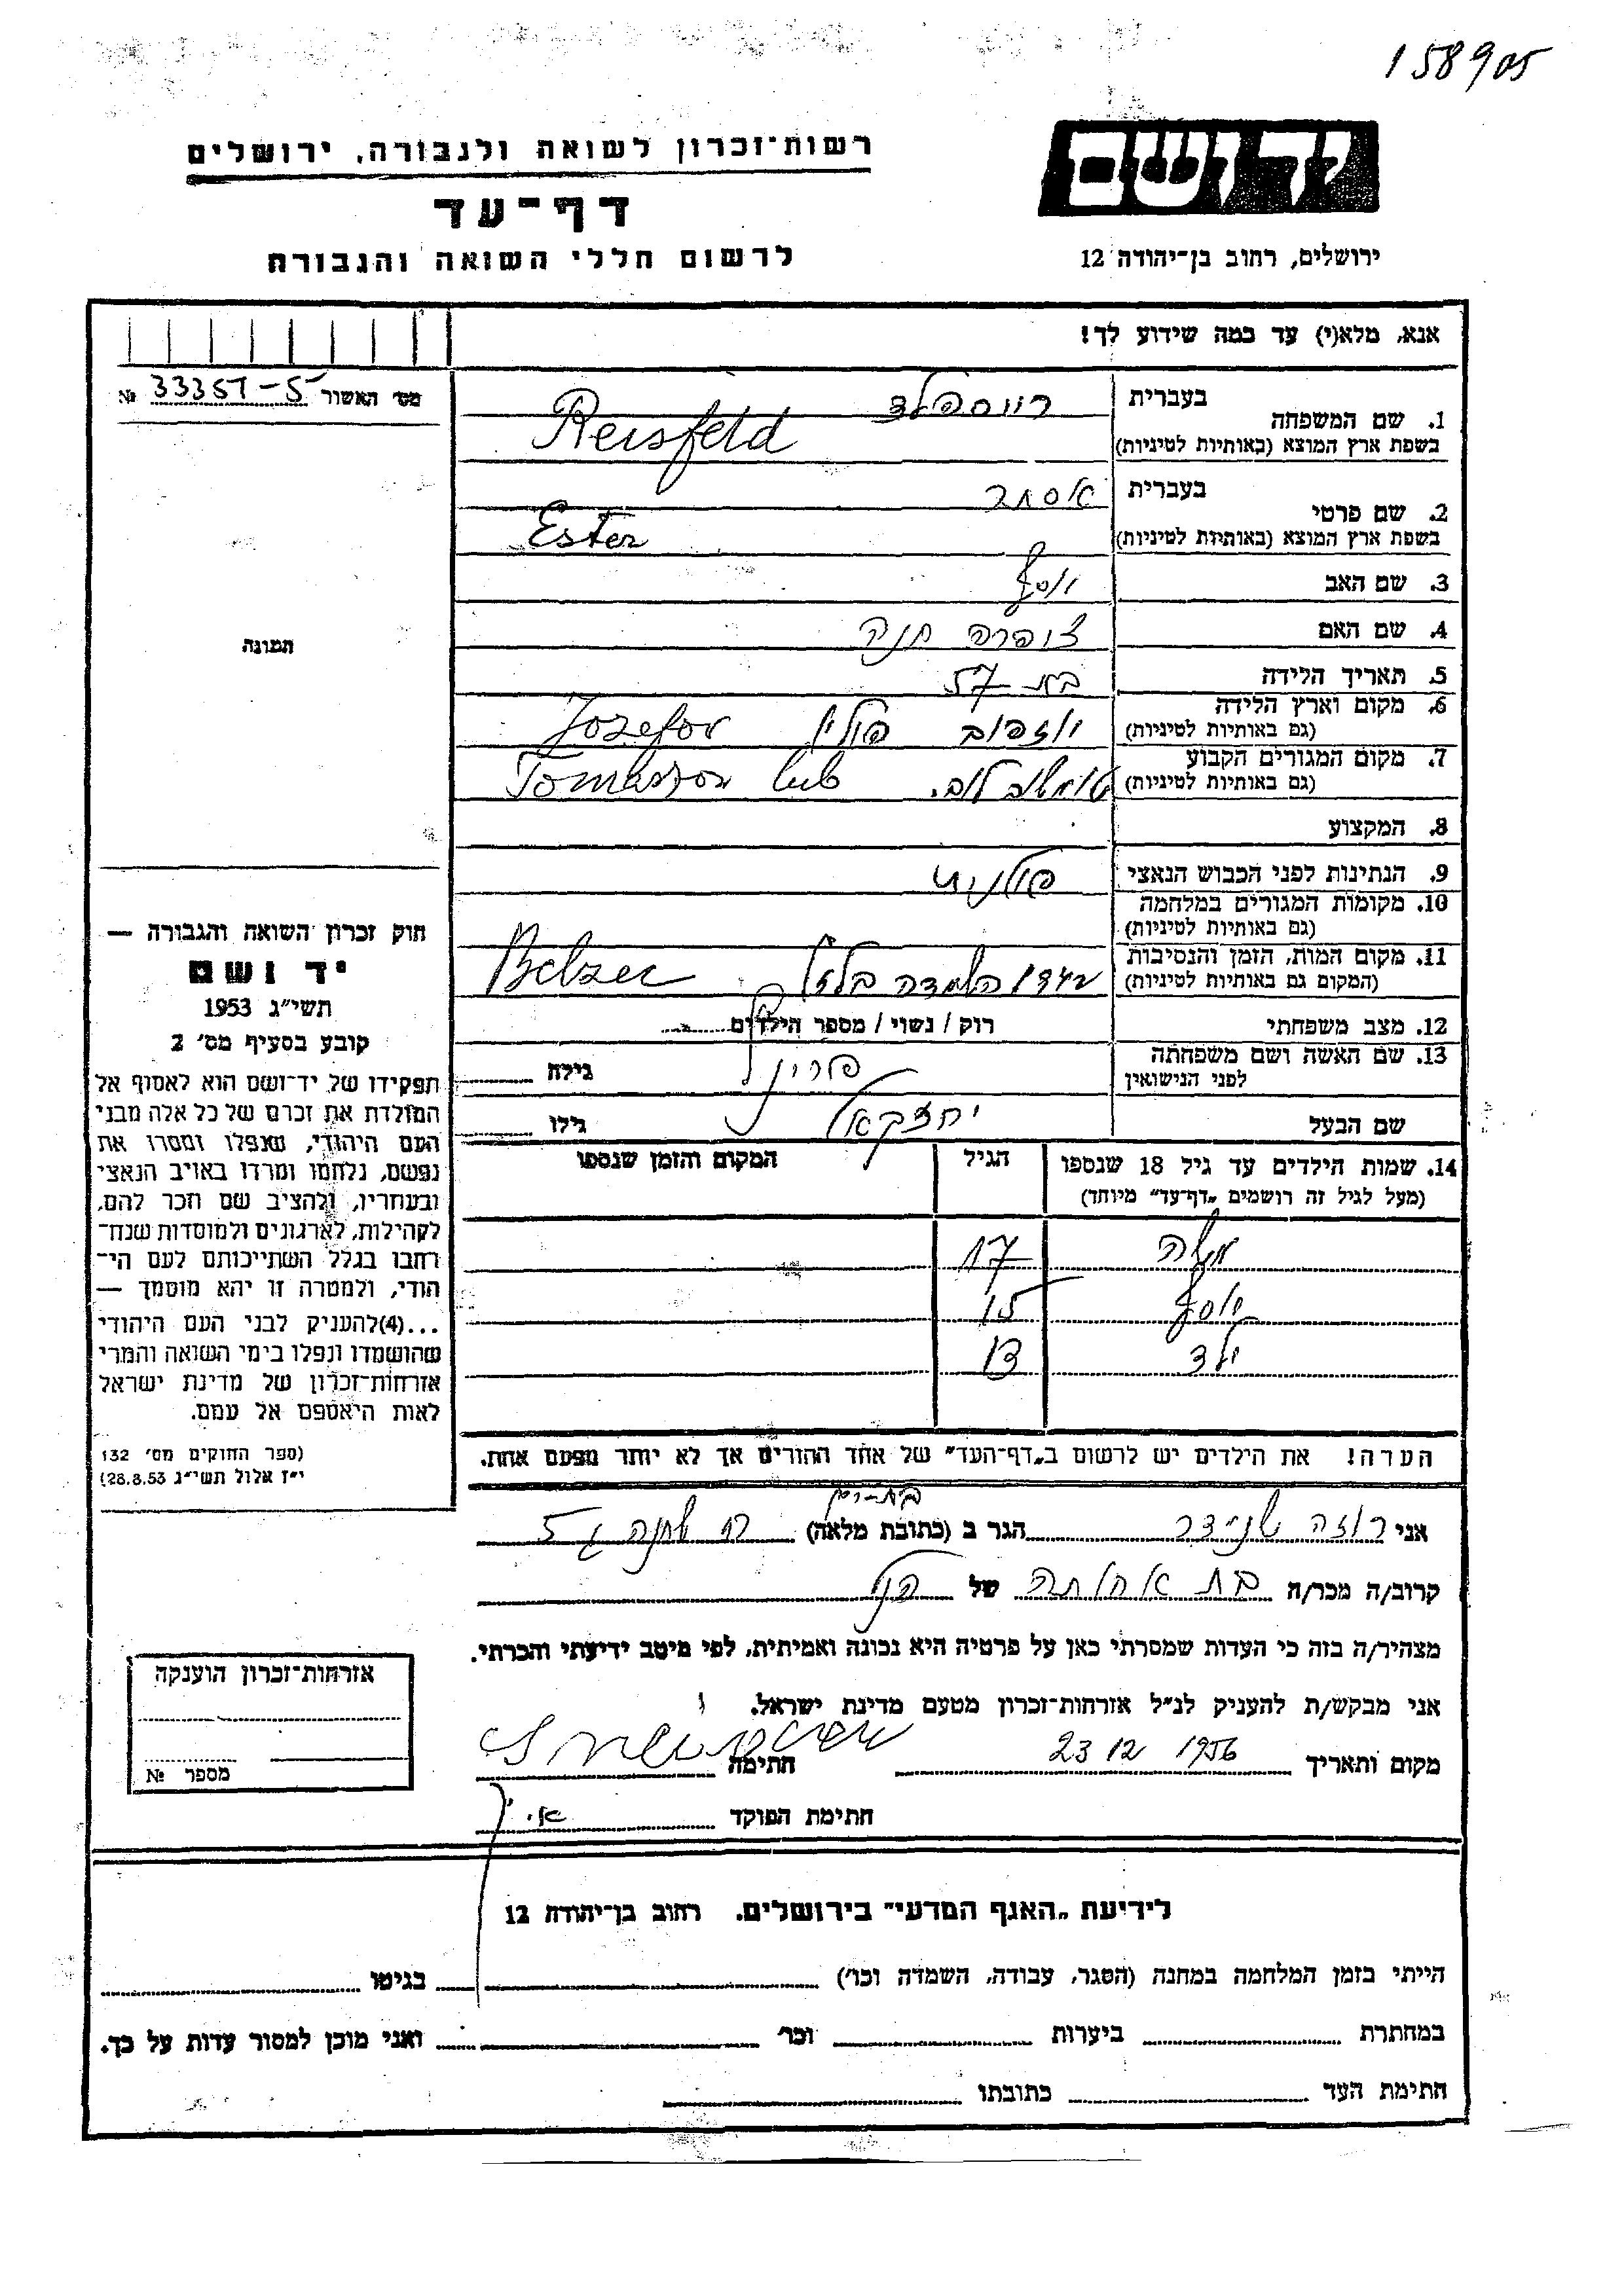 158905
יד ושם
רשות־זכרון לשואה ולגבורה, ירושלים
דף־עד
לרשום חללי השואה והגבורה
ירושלים, רחוב בן־יהודה 12
אנא, מלא(י) עד כמה שידוע לך!
מס׳ האשור 33357-5 №
1. שם המשפחה
בעברית רייספלד
בשפת ארץ המוצא (באותיות לטיניות) Reisfeld
2. שם פרטי
בעברית אסתר
בשפת ארץ המוצא (באותיות לטיניות) Ester
3. שם האב יוסף
4. שם האם ציפרה חנה
5. תאריך הלידה בת 57
6. מקום וארץ הלידה
(גם באותיות לטיניות) יוזפוב פולין Jozefov
7. מקום המגורים הקבוע
(גם באותיות לטיניות) טומשוב לוב. Tomaszov lub
8. המקצוע
9. הנתינות לפני הכבוש הנאצי פולנית
10. מקומות המגורים במלחמה
(גם באותיות לטיניות)
11. מקום המות, הזמן והנסיבות
(המקום גם באותיות לטיניות) השמדה בלזץ Belzec
12. מצב משפחתי רוק / נשוי / מספר הילדים
13. שם האשה ושם משפחתה
לפני הנישואין גילה
שם הבעל יחזקאל גילו
14. שמות הילדים עד גיל 18 שנספו הגיל המקום והזמן שנספו
(מעל לגיל זה רושמים „דף־עד״ מיוחד)
משה 17
יוסף 15
ילד 13
הערה! את הילדים יש לרשום ב„דף־העד״ של אחד ההורים אך לא יותר מפעם אחת.
תמונה
חוק זכרון השואה והגבורה —
יד ושם
תשי״ג 1953
קובע בסעיף מס׳ 2
תפקידו של יד־ושם הוא לאסוף אל
המולדת את זכרם של כל אלה מבני
העם היהודי, שנפלו ומסרו את
נפשם, נלחמו ומרדו באויב הנאצי
ובעוזריו, ולהציב שם וזכר להם,
לקהילות, לארגונים ולמוסדות שנח־
רבו בגלל השתייכותם לעם הי־
הודי, ולמטרה זו יהא מוסמך —
...(4)להעניק לבני העם היהודי
שהושמדו ונפלו בימי השואה והמרי
אזרחות־זכרון של מדינת ישראל
לאות היאספם אל עמם.
(ספר החוקים מס׳ 132
י״ז אלול תשי״ג 28.8.53)
אני רוזה שניידר הגר ב (כתובת מלאה)
קרוב/ה מכר/ה בת אחותה של הנ״ל
מצהיר/ה בזה כי העדות שמסרתי כאן על פרטיה היא נכונה ואמיתית, לפי מיטב ידיעתי והכרתי.
אני מבקש/ת להעניק לנ״ל אזרחות־זכרון מטעם מדינת ישראל.
מקום ותאריך 23 12 1956 חתימה
חתימת הפוקד
אזרחות־זכרון הוענקה
מספר №
לידיעת „האגף המדעי״ בירושלים. רחוב בן־יהודה 12
הייתי בזמן המלחמה במחנה (הסגר, עבודה, השמדה וכו׳) בגיטו
במחתרת ביערות וכו׳ ואני מוכן למסור עדות על כך.
חתימת העד כתובתו